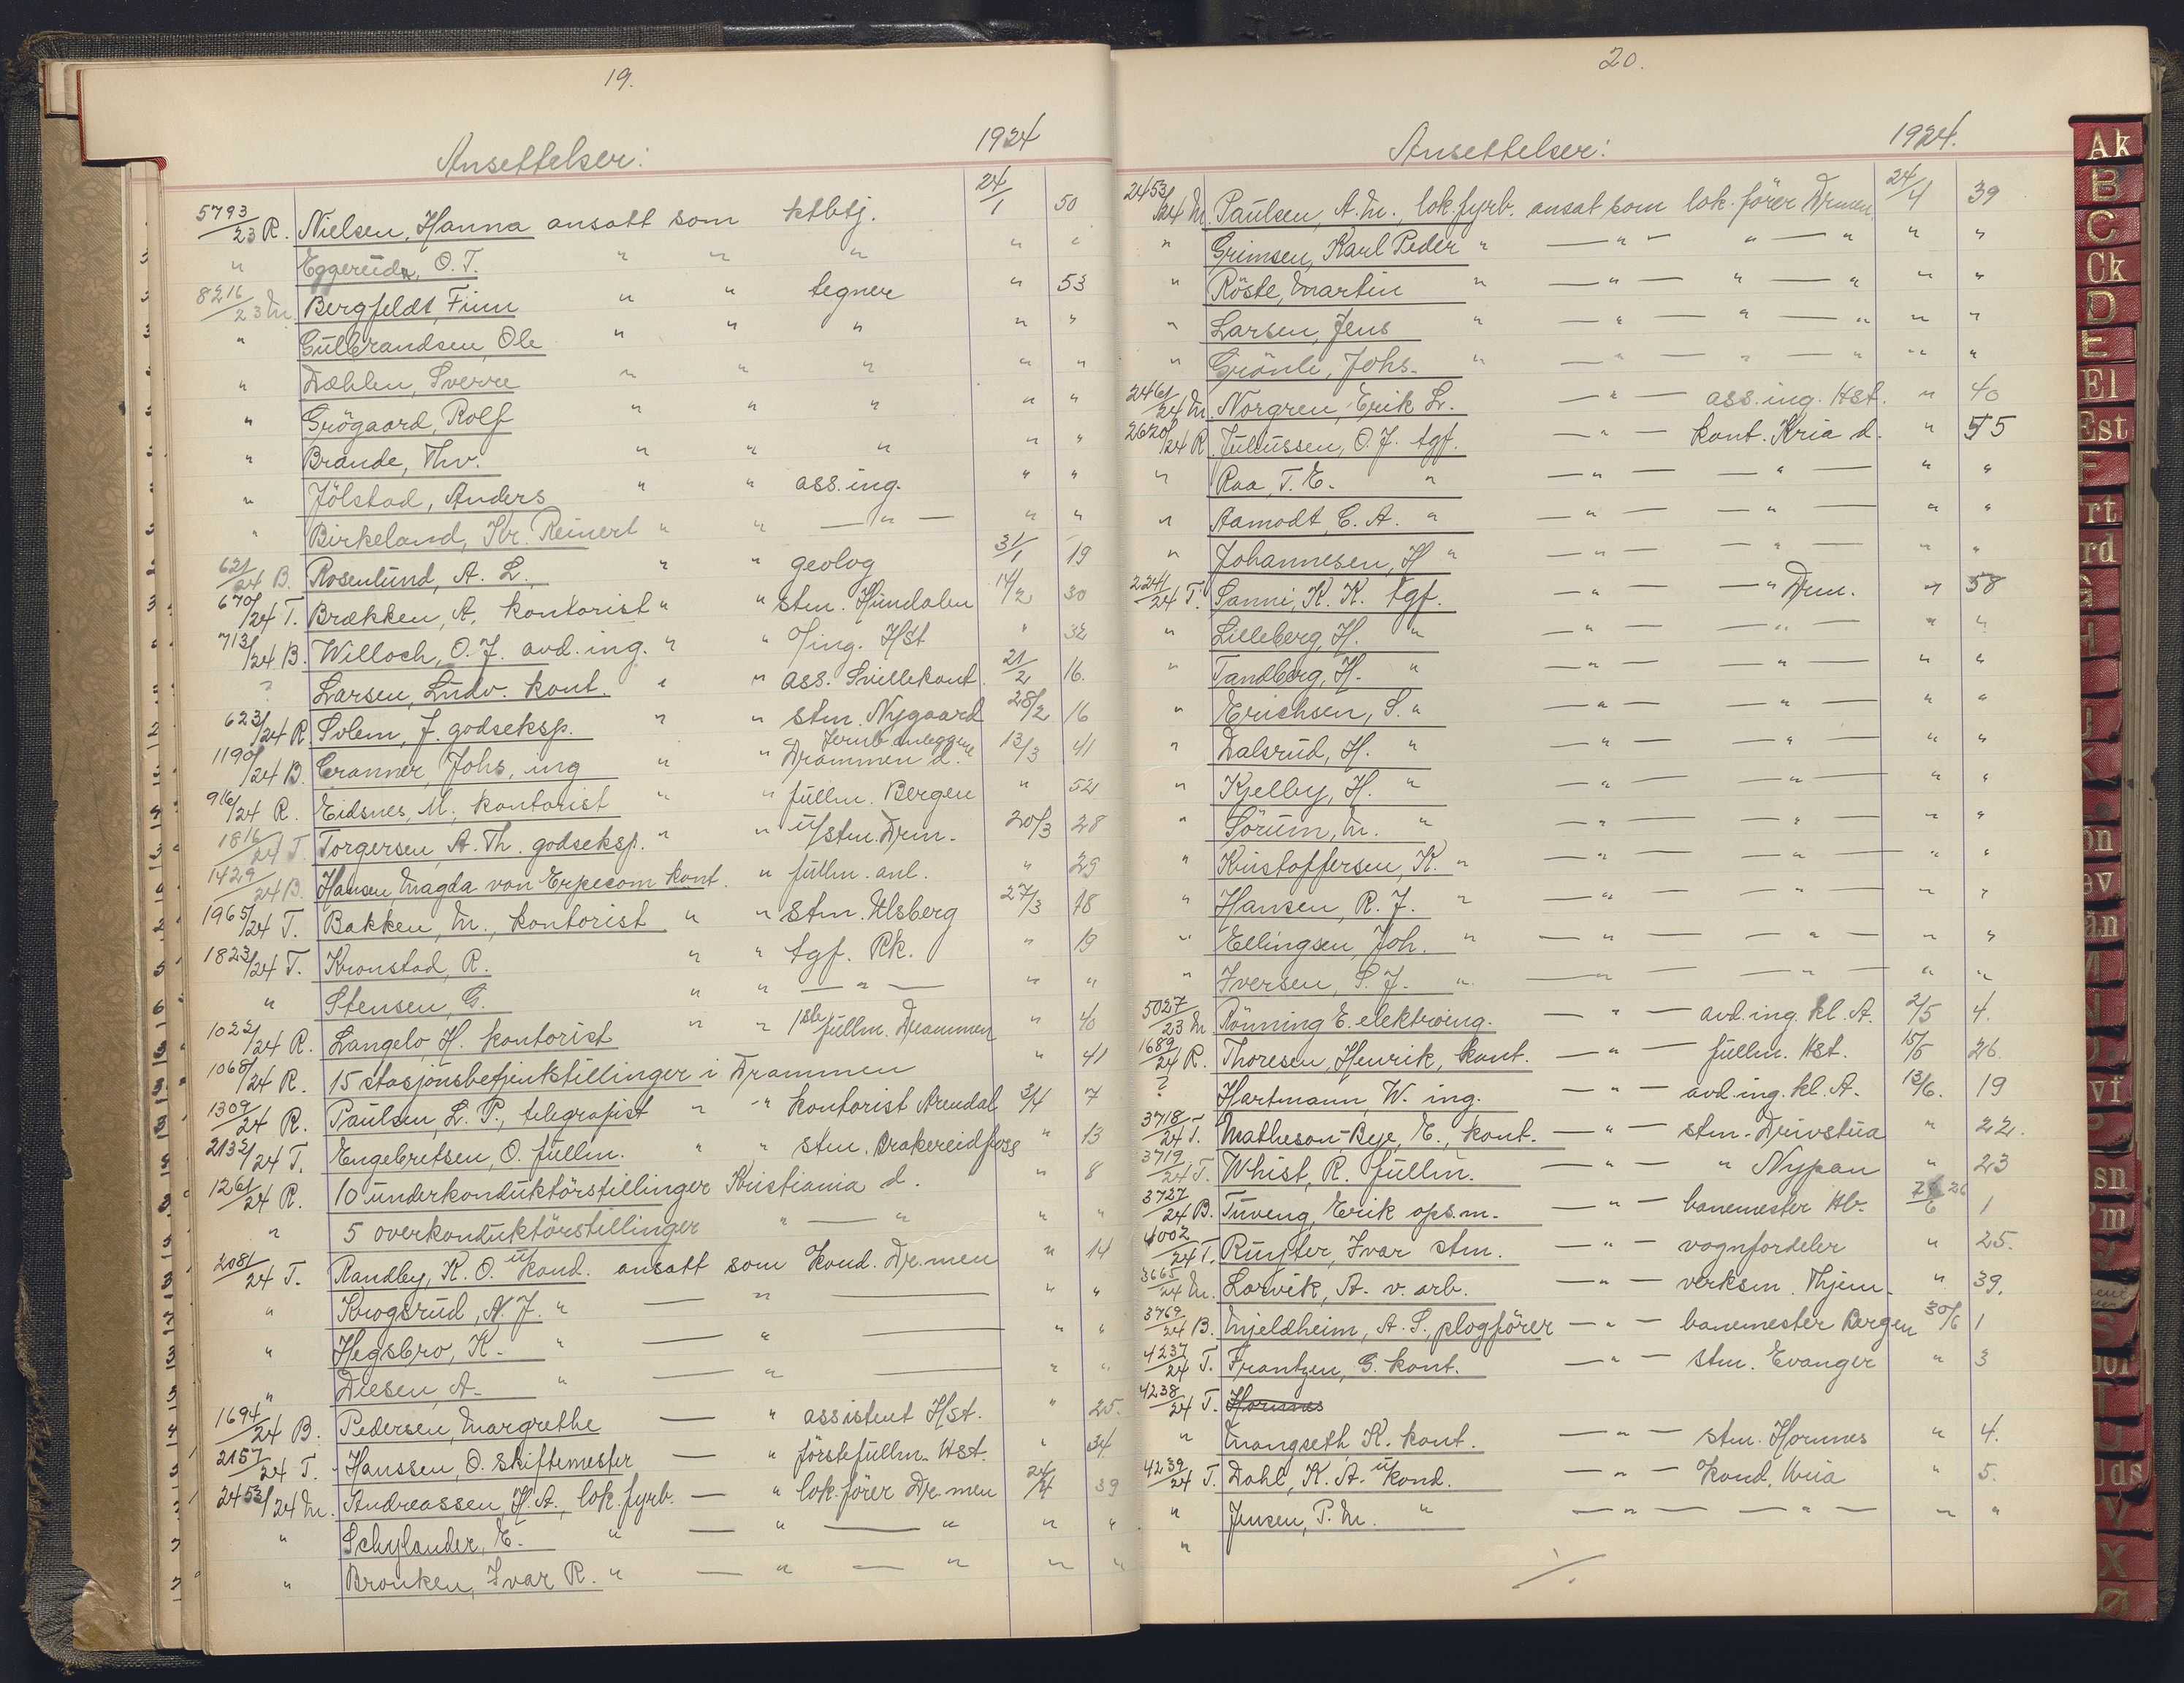 19.
Ansettelser: 1924
5793/23 R. Nielsen, Hanna ansatt som ktbtj. 24/1 50
" Eggerud, O. T. " " " " "
8216/23 M. Bergfeldt, Finn " " tegner " 53
" Gulbrandsen, Ole " " " " "
" Dæhlen, Sverre " " " " "
" Grögaard, Rolf " " " " "
" Brande, Thv. " " " " "
" Jölstad, Anders " " ass. ing. " "
" Birkeland, Kr. Reinert " " — " — " "
621/24 B. Rosenlund, A. L. " " geolog 31/1 19
670/24 T. Brækken, A. kontorist " " stm. Hundalen 14/2 30
713/24 B. Willoch, O. J. avd. ing. " " o/ing. Hst " 32
? Larsen, Ludv. kont. " " ass. Svillekont. 21/2 16.
623/24 R. Solem, J. godseksp. " " stm. Nygaard 28/2 16
1190/24 B. Cranner, Johs, ing " " Jernb. anleggene Drammen d. 13/3 41
916/24 R. Eidsnes, M., kontorist " " fullm. Bergen " 52
1816/24 T. Torgersen, A. Th. godseksp. " " u/stm. Drm. 20/3 28
1429/24 B. Hansen, Magda von Erpecom kont. " fullm. anl. " 29
1965/24 T. Bakken, M., kontorist " " stm. Ulsberg 27/3 18
1823/24 T. Kronstad, R. " " tgf. Rk. " 19
" Stensen, G. " " — " — " "
1022/24 R. Langelo, H. kontorist " " 1ste fullm. Drammen " 40
1068/24 R. 15 stasjonsbetjentstillinger i Drammen " 41
1309/24 R. Paulsen, L. P., telegrafist " " kontorist Arendal 3/4 7
2132/24 T. Engebretsen, O. fullm. " " stm. Brakereidfoss " 13
1261/24 R. 10 underkonduktörstillinger Kristiania d. " 8
" 5 overkonduktörstillinger " — " " "
2081/24 T. Randby, K. O. u/kond. ansatt som kond. Dr.men " 14
" Krogsrud, N. J. " — " — " "
" Hegsbro, K. " — " — " "
" Diesen, A. " — " — " "
1694/24 B. Pedersen, Margrethe — " assistent Hst. " 25.
2157/24 T. Hanssen, O. Skiftemester — " förstefullm. Hst. " 34.
2453/24 M. Andreassen, H. A., lok. fyrb. — " lok. förer Dr.men 24/4 39
" Schylander, E. " — " — " " "
" Bronken, Ivar R. " — " — " " "
20.
Ansettelser: 1924.
2453/24 M. Paulsen, A. M., lok. fyrb. ansat som lok. förer Drmen 24/4 39
" Grimsen, Karl Peder " — " — " — " " "
" Röste, Martin " — " — " — " " "
" Larsen, Jens " — " — " — " " "
" Grönli, Johs. " — " — " — " " "
2461/24 M. Norgren, Erik L. — " — ass. ing. Hst. " 40
2620/24 R. Juliussen, O. J. tgf. — " — kont. Kria d. " 55
" Raa, T. E. " — " — " — " "
" Aamodt, C. A. " — " — " — " "
" Johannesen, H " — " — " — " "
2241/24 T. Sanni, K. K. tgf. — " — — " Drm. " 58
" Lilleberg, H. " — " — — " — " "
" Tandberg, H. " — " — — " — " "
" Erichsen, S. " — " — — " — " "
" Dalsrud, H. " — " — — " — " "
" Kjelby, H. " — " — " — " "
" Sörum, M. " — " — — " — " "
" Kristoffersen, K. " — " — — " — " "
" Hansen, R. J. " — " — — " — " "
" Ellingsen, Joh. " — " — — " — " "
" Iversen, S. J. " — " — — " — " "
5027/23 M. Rönning E. elektroing. — " — avd. ing. kl. A. 2/5 4.
1689/24 R. Thoresen, Henrik, kont. — " — fullm. Hst. 15/5 26.
? Hartmann, W. ing. — " — avd. ing. kl. A. 13/6. 19
3718/24 T. Matheson-Bye, E., kont. — " — stm. Drivstua " 22.
3719/24 T. Whist, R. fullm. — " — " Nypan " 23
3727/24 B. Tuveng, Erik ops.m. — " — banemester Hb. 26/6 1
4002/24 T. Ruyter, Ivar stm. — " — vognfordeler " 25.
3665/24 M. Larvik, A. v. arb. — " — verksm. Thjem. " 39.
3769/24 B. Mjeldheim, A. S., plogförer — " — banemester Bergen 30/6 1
4237/24 T. Frantzen, G. kont. — " — stm. Evanger " 3
4238/24 T. Hornnes
" Mangseth K. kont. — " — stm. Hornnes " 4.
4239/24 T. Dahl, K. A. u/kond. — " — kond. Kria " 5.
" Jensen, P. M. " — " — " — " "
"
./.
Ak
B
C
Ck
D
E
El
Est
F
rt
rd
G
H
J
K
ön
ev
än
M
N
vf
sn
m
S
T
U
Uds
V
X
Ø